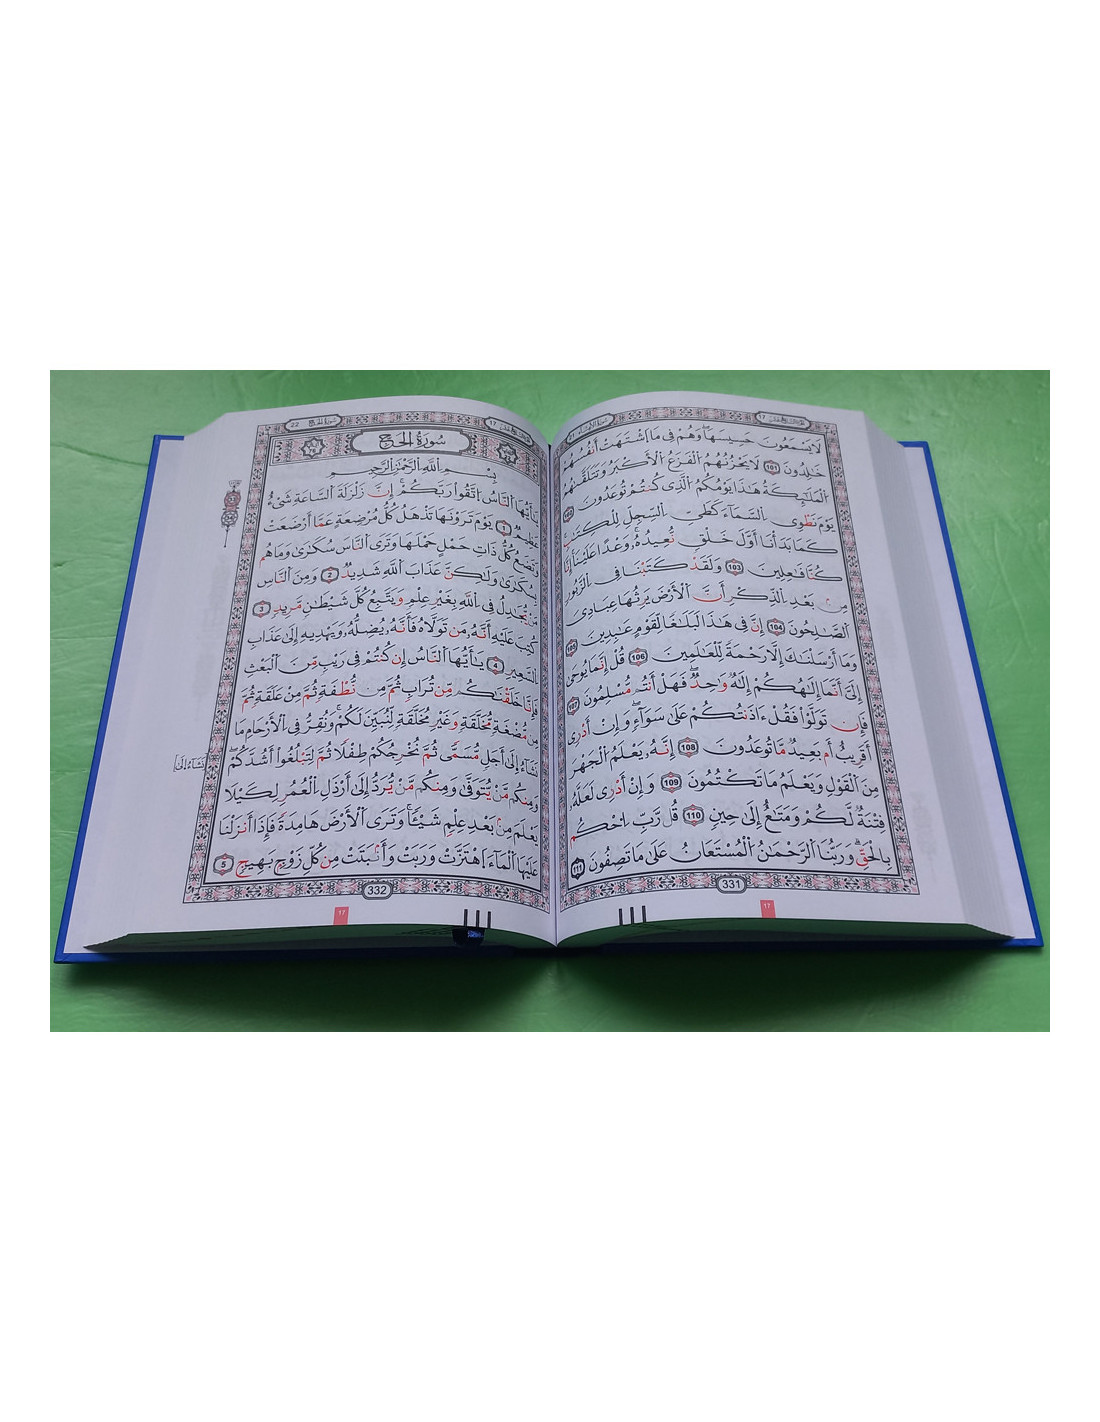 لَا يَسْمَعُونَ حَسِيسَهَا ۖ وَهُمْ فِى مَا ٱشْتَهَتْ أَنفُسُهُمْ
خَـٰلِدُونَ 101 لَا يَحْزُنُهُمُ ٱلْفَزَعُ ٱلْأَكْبَرُ وَتَتَلَقَّىٰهُمُ
ٱلْمَلَـٰٓئِكَةُ هَـٰذَا يَوْمُكُمُ ٱلَّذِى كُنتُمْ تُوعَدُونَ 102
يَوْمَ نَطْوِى ٱلسَّمَآءَ كَطَىِّ ٱلسِّجِلِّ لِلْكُتُبِ ۚ
كَمَا بَدَأْنَآ أَوَّلَ خَلْقٍ نُّعِيدُهُۥ ۚ وَعْدًا عَلَيْنَآ ۚ إِنَّا
كُنَّا فَـٰعِلِينَ 103 وَلَقَدْ كَتَبْنَا فِى ٱلزَّبُورِ
مِنۢ بَعْدِ ٱلذِّكْرِ أَنَّ ٱلْأَرْضَ يَرِثُهَا عِبَادِىَ
ٱلصَّـٰلِحُونَ 104 إِنَّ فِى هَـٰذَا لَبَلَـٰغًا لِّقَوْمٍ عَـٰبِدِينَ 105
وَمَآ أَرْسَلْنَـٰكَ إِلَّا رَحْمَةً لِّلْعَـٰلَمِينَ 106 قُلْ إِنَّمَا يُوحَىٰٓ
إِلَىَّ أَنَّمَآ إِلَـٰهُكُمْ إِلَـٰهٌ وَٰحِدٌ ۖ فَهَلْ أَنتُم مُّسْلِمُونَ 107
فَإِن تَوَلَّوْا۟ فَقُلْ ءَاذَنتُكُمْ عَلَىٰ سَوَآءٍ ۖ وَإِنْ أَدْرِىٓ
أَقَرِيبٌ أَم بَعِيدٌ مَّا تُوعَدُونَ 108 إِنَّهُۥ يَعْلَمُ ٱلْجَهْرَ
مِنَ ٱلْقَوْلِ وَيَعْلَمُ مَا تَكْتُمُونَ 109 وَإِنْ أَدْرِى لَعَلَّهُۥ
فِتْنَةٌ لَّكُمْ وَمَتَـٰعٌ إِلَىٰ حِينٍ 110 قُل رَّبِّ ٱحْكُم
بِٱلْحَقِّ ۗ وَرَبُّنَا ٱلرَّحْمَـٰنُ ٱلْمُسْتَعَانُ عَلَىٰ مَا تَصِفُونَ 111
331
17
22
سُورَةُ الْحَجِّ
بِسْمِ ٱللَّهِ ٱلرَّحْمَـٰنِ ٱلرَّحِيمِ
يَـٰٓأَيُّهَا ٱلنَّاسُ ٱتَّقُوا۟ رَبَّكُمْ ۚ إِنَّ زَلْزَلَةَ ٱلسَّاعَةِ شَىْءٌ
عَظِيمٌ 1 يَوْمَ تَرَوْنَهَا تَذْهَلُ كُلُّ مُرْضِعَةٍ عَمَّآ أَرْضَعَتْ
وَتَضَعُ كُلُّ ذَاتِ حَمْلٍ حَمْلَهَا وَتَرَى ٱلنَّاسَ سُكَـٰرَىٰ وَمَا هُم
بِسُكَـٰرَىٰ وَلَـٰكِنَّ عَذَابَ ٱللَّهِ شَدِيدٌ 2 وَمِنَ ٱلنَّاسِ
مَن يُجَـٰدِلُ فِى ٱللَّهِ بِغَيْرِ عِلْمٍ وَيَتَّبِعُ كُلَّ شَيْطَـٰنٍ مَّرِيدٍ 3
كُتِبَ عَلَيْهِ أَنَّهُۥ مَن تَوَلَّاهُ فَأَنَّهُۥ يُضِلُّهُۥ وَيَهْدِيهِ إِلَىٰ عَذَابِ
ٱلسَّعِيرِ 4 يَـٰٓأَيُّهَا ٱلنَّاسُ إِن كُنتُمْ فِى رَيْبٍ مِّنَ ٱلْبَعْثِ
فَإِنَّا خَلَقْنَـٰكُم مِّن تُرَابٍ ثُمَّ مِن نُّطْفَةٍ ثُمَّ مِنْ عَلَقَةٍ ثُمَّ
مِن مُّضْغَةٍ مُّخَلَّقَةٍ وَغَيْرِ مُخَلَّقَةٍ لِّنُبَيِّنَ لَكُمْ ۚ وَنُقِرُّ فِى ٱلْأَرْحَامِ مَا
نَشَآءُ إِلَىٰٓ أَجَلٍ مُّسَمًّى ثُمَّ نُخْرِجُكُمْ طِفْلًا ثُمَّ لِتَبْلُغُوٓا۟ أَشُدَّكُمْ ۖ
وَمِنكُم مَّن يُتَوَفَّىٰ وَمِنكُم مَّن يُرَدُّ إِلَىٰٓ أَرْذَلِ ٱلْعُمُرِ لِكَيْلَا
يَعْلَمَ مِنۢ بَعْدِ عِلْمٍ شَيْـًٔا ۚ وَتَرَى ٱلْأَرْضَ هَامِدَةً فَإِذَآ أَنزَلْنَا
عَلَيْهَا ٱلْمَآءَ ٱهْتَزَّتْ وَرَبَتْ وَأَنۢبَتَتْ مِن كُلِّ زَوْجٍۭ بَهِيجٍ 5
332
17